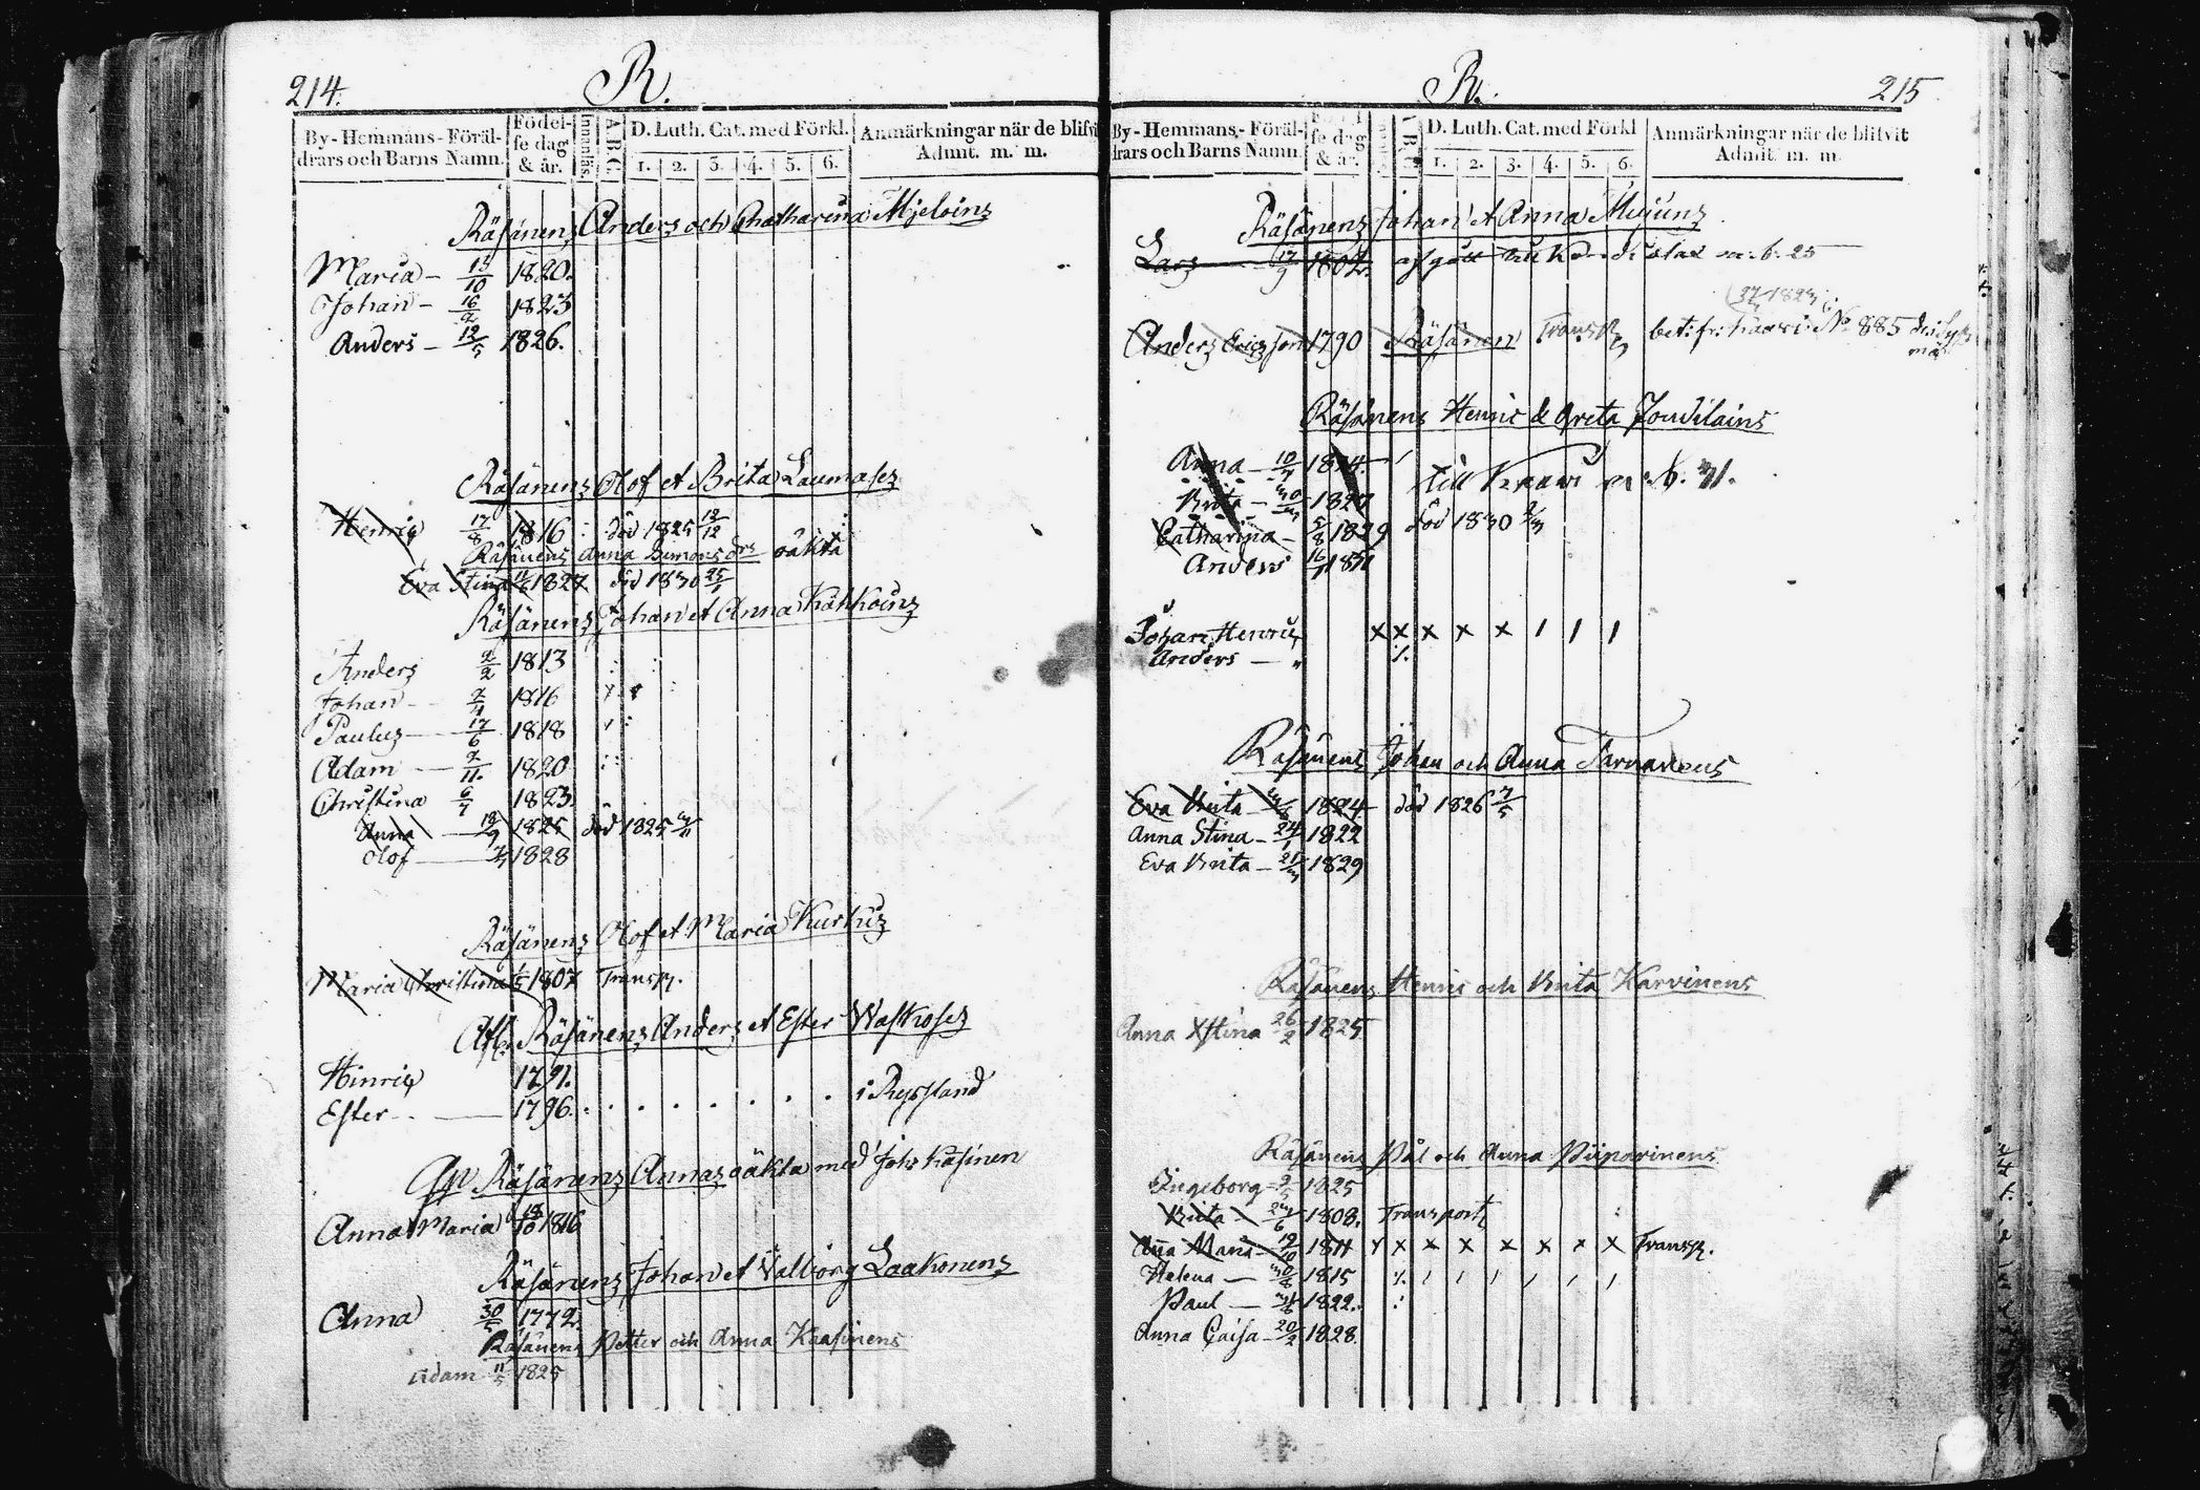 214.
R.
By-Hemmans-Föräl-
drars och Barns Namn.
Födel-
se dag
& år.
Innanläs.
A.B.C.
D. Luth. Cat. med Förkl.
1. 2. 3. 4. 5. 6.
Anmärkningar när de blifvit
Admit. m. m.
Räsänens Anders och Chatharina Mjeloins
Maria - 13/10 1820.
Johan - 16/2 1823
Anders - 12/5 1826.
Räsänens Olof et Brita Laumases
Henric 17/8 1816 död 1825 12/12
Räsänens Anna Simons drs oäkta
Eva Stina 1827 död 1830 25/1
Räsänens Johan et Anna Kähköins
Anders 2/2 1813
Johan 2/4 1816
Paulus 17/6 1818
Adam 2/11. 1820
Christina 6/7 1823.
Anna 18/9 1825 död 1825
Olof 1828
Räsänens Olof et Maria
Maria Christina 1/5 1807 Transp.
Afl. Räsänens Anders et Ester Waskoses
Hinric 1791.
Ester 1796. i Ryssland
Räsänens Annas oäkta med Joh:
Anna Maria 18/10 1816
Räsänens Johan et Valborg Laakonens
Anna 30/5 1772.
Räsänens Petter och Anna Kaasinens
Adam 11/5 1825
R.
215
By-Hemmans-Föräl-
drars och Barns Namn.
se dag
& år.
A B C
D. Luth. Cat. med Förkl
1. 2. 3. 4. 5. 6.
Anmärkningar när de blifvit
Admit. m. m
Räsänens Johan et Anna
Lars 17/9 1802. afgått till
1823
Anders Ericsson 1790 Räsänen Transp. bet: fr: No 885
Räsänens Henric & Greta
Anna - 10/7 1824.
till
Brita - 1827
Catharina - 5/8 1829 död 1830 2/3
Anders 16/7 1831
Johan Henric x x x x x / / /
Anders -
Räsänens Johan och Anna Tarvanens
Eva Brita - 1824 död 1826 7/5
Anna Stina - 24/1 1822
Eva Brita - 21/3 1829
Räsänens Henric och Brita Karvinens
Anna Xstina 26/2 1825
Räsänens Pål och Anna Piiparinens
Ingeborg 1825
Brita - 23/6 1808. Transport
Aña Maria - 19/10 1811 x x x x x x x Transp.
Helena - 30/8 1815
Paul - 1822.
Anna Caisa - 20/2 1828.